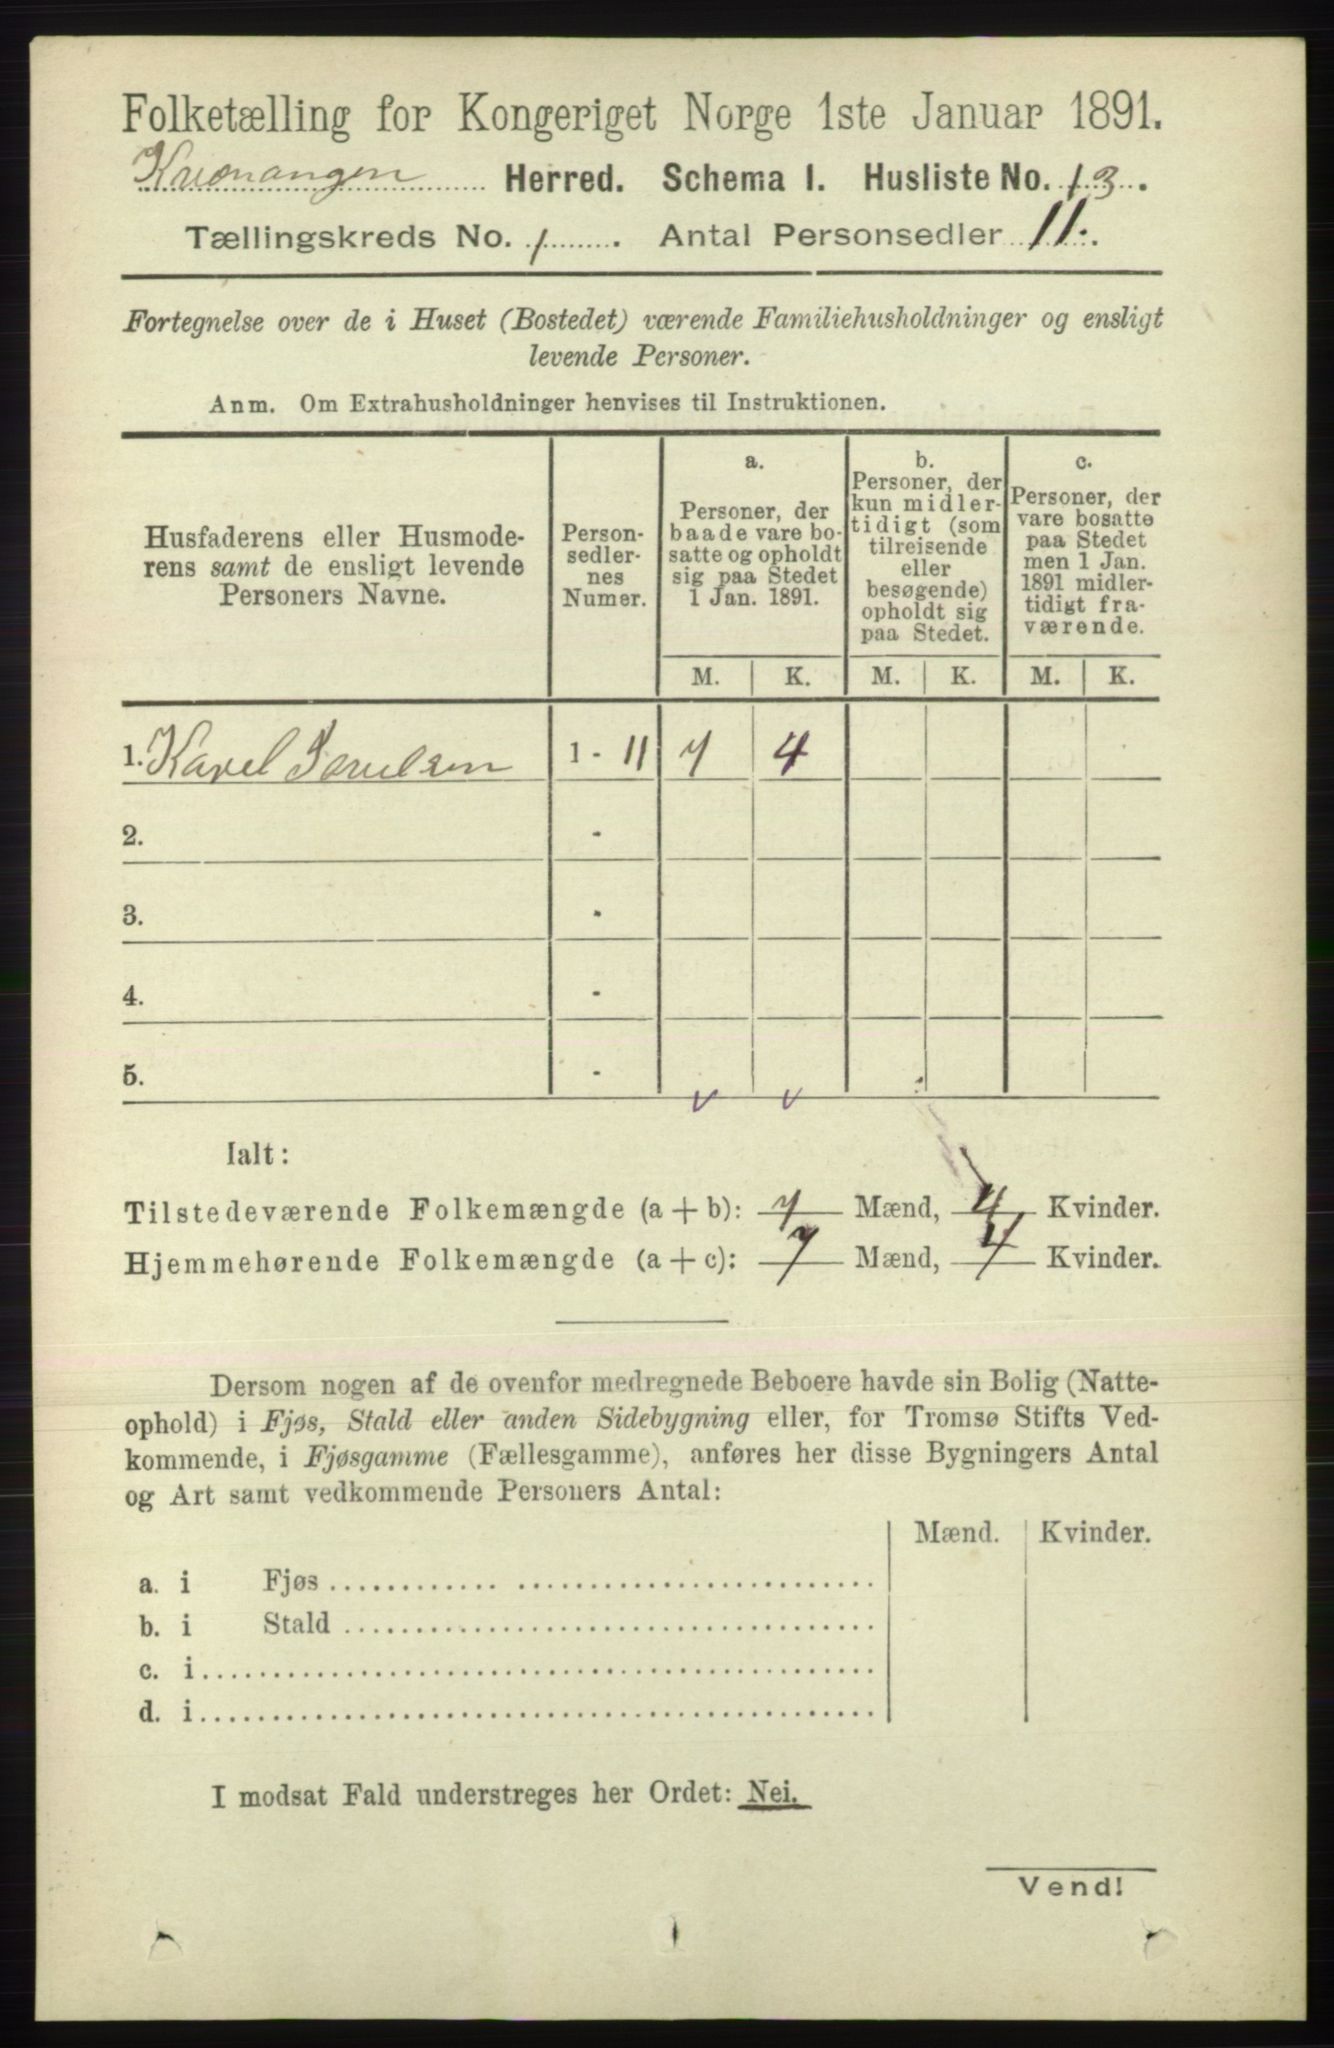 Folketælling for Kongeriget Norge 1ste Januar 1891.
Kvænangen Herred. Schema 1. Husliste No. 13.
Tællingskreds No. 1. Antal Personsedler 11.
Fortegnelse over de i Huset (Bostedet) værende Familiehusholdninger og ensligt
levende Personer.
Anm. Om Extrahusholdninger henvises til Instruktionen.
Husfaderens eller Husmode-
rens samt de ensligt levende
Personers Navne.
Person-
sedler-
nes
Numer.
a.
Personer, der
baade vare bo-
satte og opholdt
sig paa Stedet
1 Jan. 1891.
b.
Personer, der
kun midler-
tidigt (som
tilreisende
eller
besøgende)
opholdt sig
paa Stedet.
c.
Personer, der
vare bosatte
paa Stedet
men 1 Jan.
1891 midler-
tidigt fra-
værende.
M. K. M. K. M. K.
1. Karel 1 - 11 7 4
2. -
3. -
4. -
5. -
Ialt:
Tilstedeværende Folkemængde (a + b): 7 Mænd, 4 Kvinder.
Hjemmehørende Folkemængde (a + c): 7 Mænd, 4 Kvinder.
Dersom nogen af de ovenfor medregnede Beboere havde sin Bolig (Natte-
ophold) i Fjøs, Stald eller anden Sidebygning eller, for Tromsø Stifts Ved-
kommende, i Fjøsgamme (Fællesgamme), anføres her disse Bygningers Antal
og Art samt vedkommende Personers Antal:
Mænd. Kvinder.
a. i Fjøs
b. i Stald
c. i
d. i
I modsat Fald understreges her Ordet: Nei.
Vend!